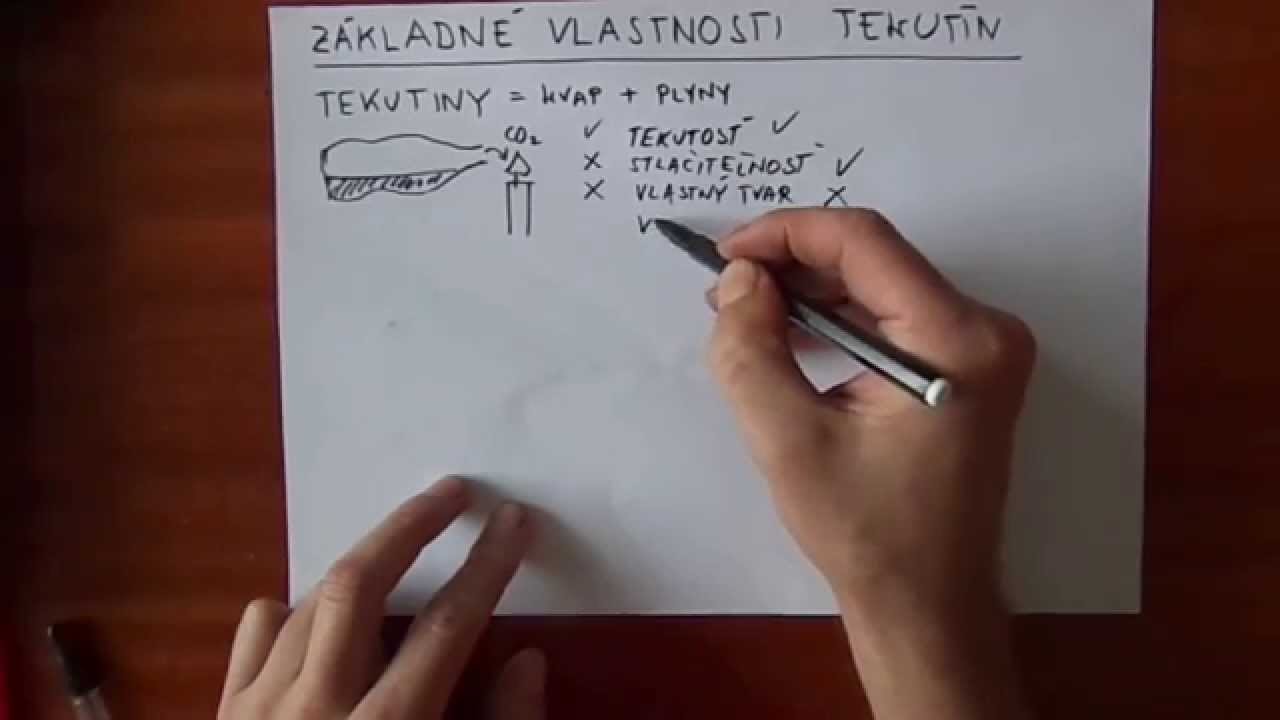 ZÁKLADNÉ VLASTNOSTI TEKUTÍN
TEKUTINY = KVAP + PLYNY
CO₂ ✓ TEKUTOSŤ ✓
✗ STLAČITEĽNOSŤ ✓
✗ VLASTNÝ TVAR ✗
V